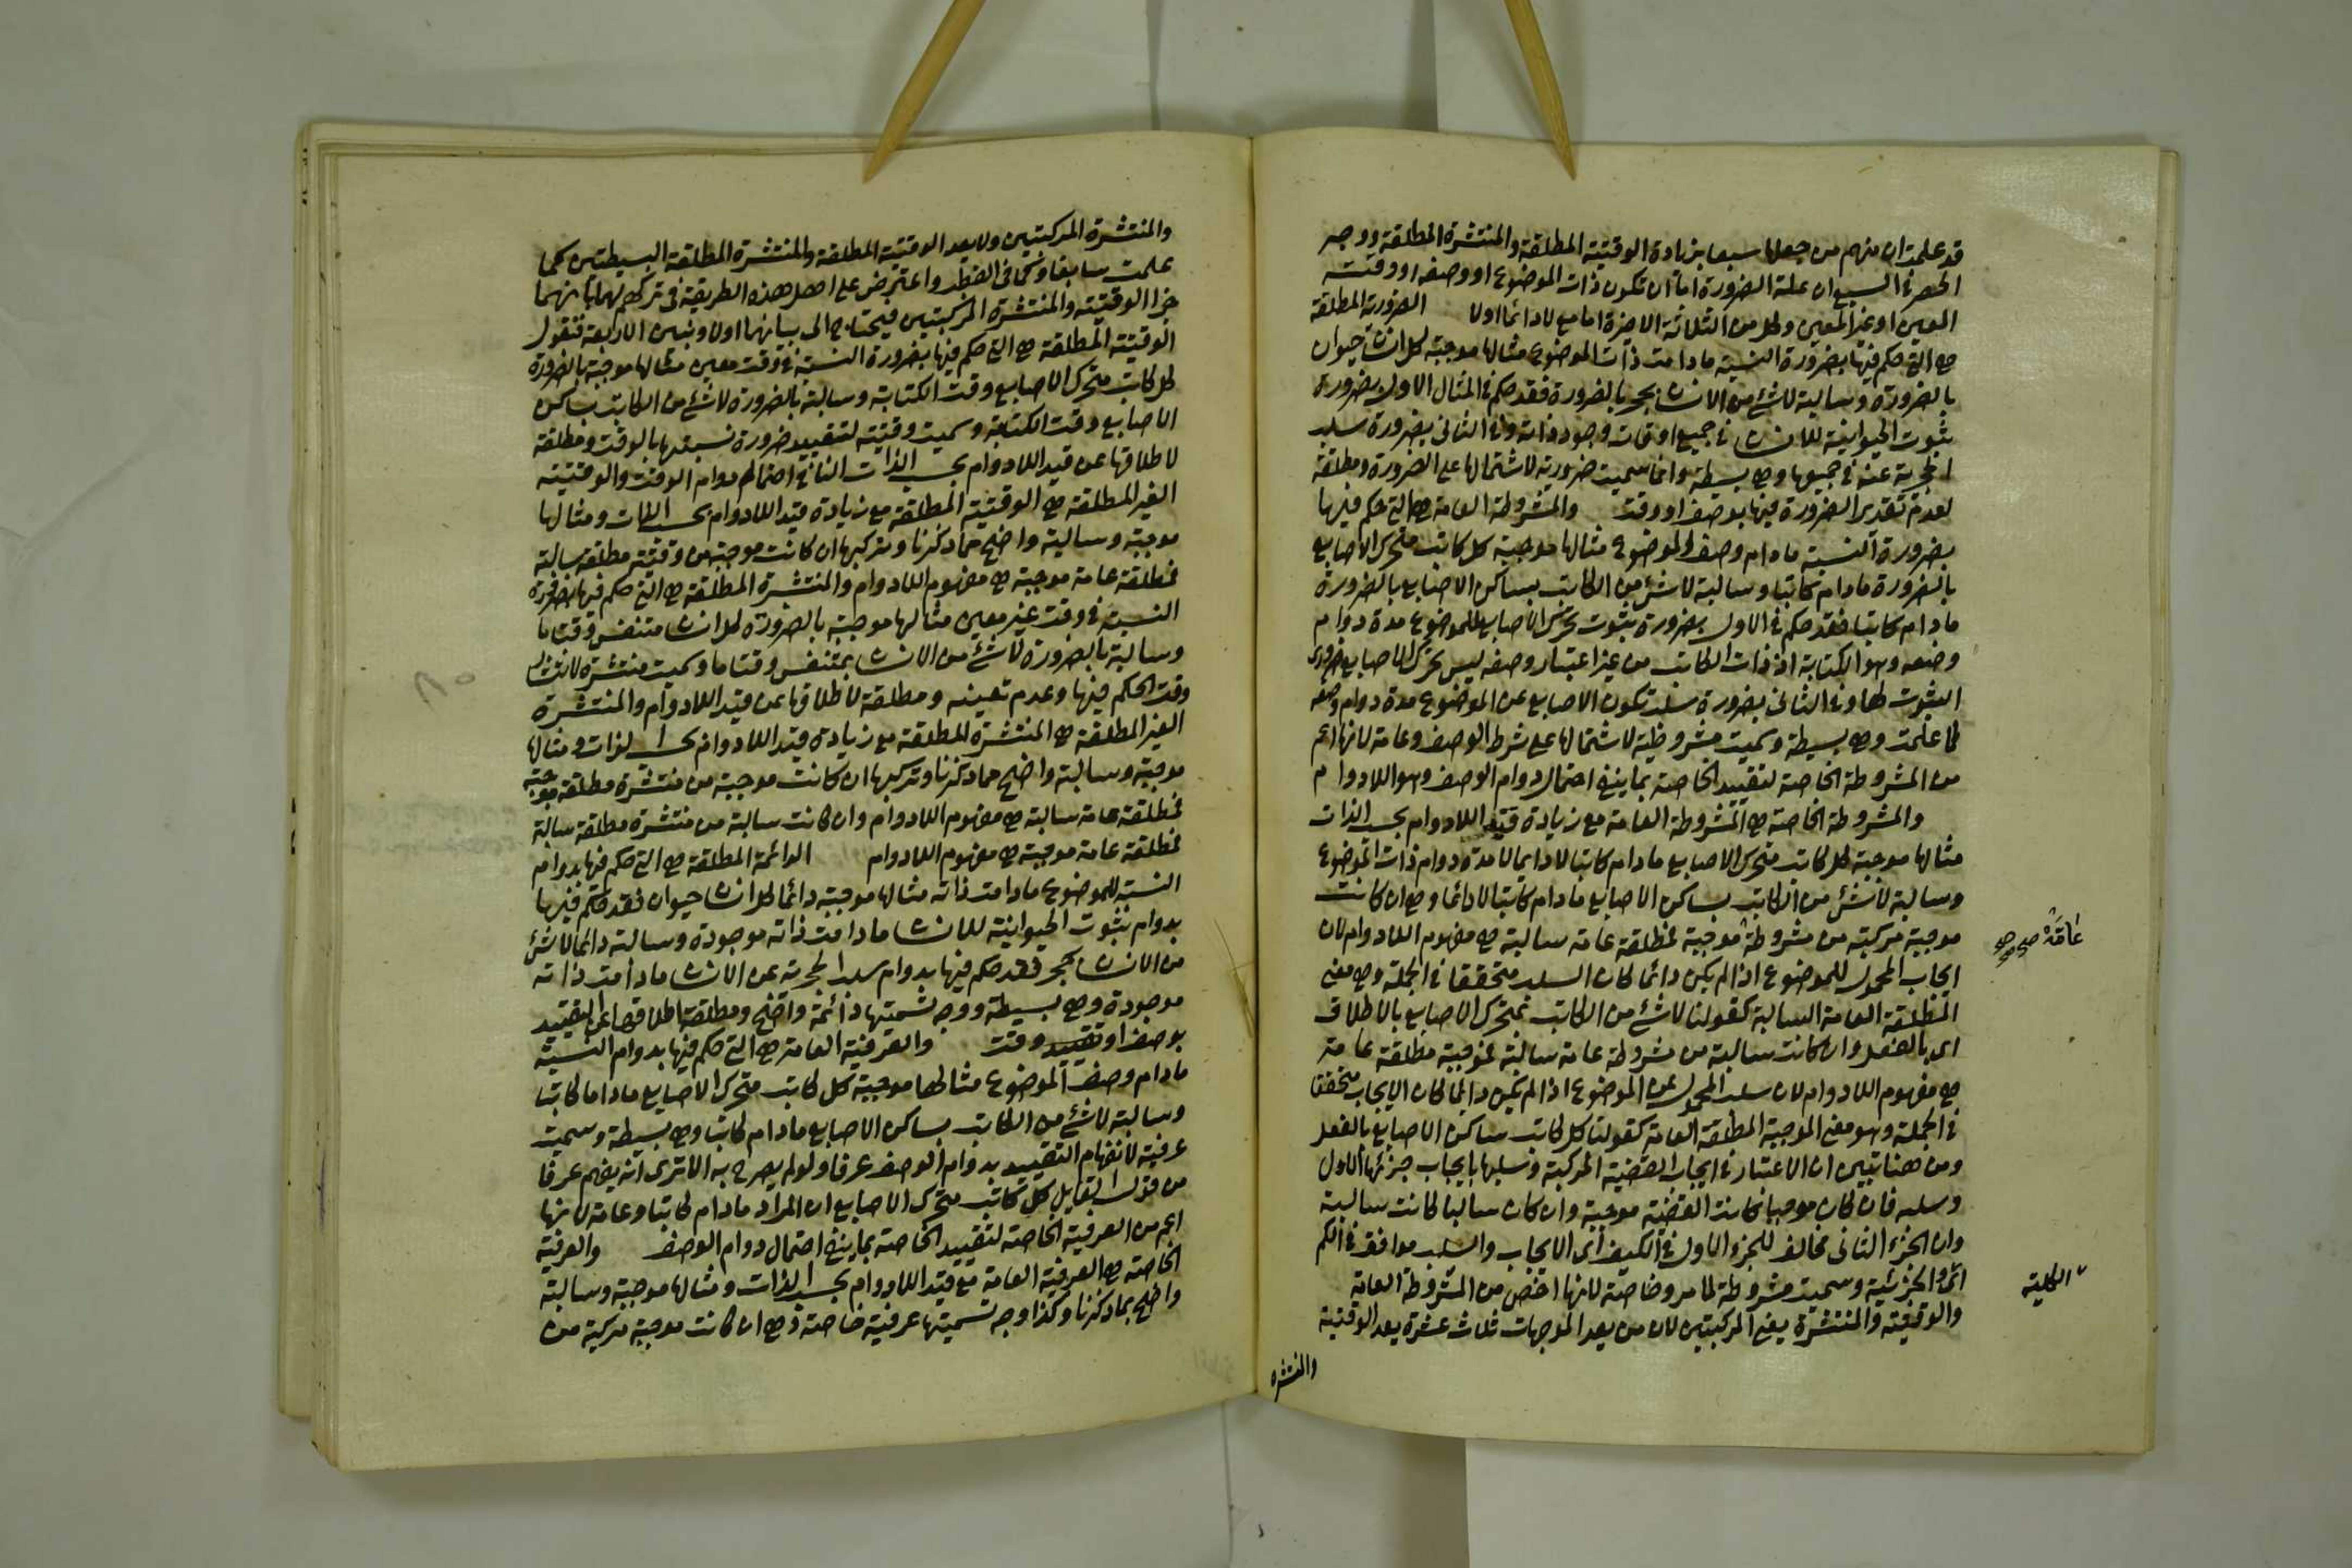 قد علمت ان منهم من جعلها سبعا بزيادة الوقتية المطلقة والمنتشرة المطلقة ووجه
الحصر في السبع ان علة الضرورة اما ان تكون ذات الموضوع او وصفه او وقته
المعين او غير المعين وكل من الثلاثة الاخيرة اما مع لا دائما او لا الضرورية المطلقة
هي التي حكم فيها بضرورة النسبة ما دامت ذات الموضوع مثالها موجبة كل انسان حيوان
بالضرورة وسالبة لا شئ من الانسان بحجر بالضرورة فقد حكم في المثال الاول بضرورة
ثبوت الحيوانية للانسان في جميع اوقات وجود ذاته وفي الثاني بضرورة سلب
الحجرية عنه في جميعها وهي بسيطة وانما سميت ضرورية لاشتمالها على الضرورة ومطلقة
لعدم تقييد الضرورة فيها بوصف او وقت والمشروطة العامة هي التي حكم فيها
بضرورة النسبة ما دام وصف الموضوع مثالها موجبة كل كاتب متحرك الاصابع
بالضرورة ما دام كاتبا وسالبة لا شئ من الكاتب بساكن الاصابع بالضرورة
ما دام كاتبا فقد حكم في الاول بضرورة ثبوت تحرك الاصابع للموضوع مدة دوام
وصفه وهو الكتابة اذ ذات الكاتب من غير اعتبار وصفه ليس تحرك الاصابع ضروري
الثبوت لها وفي الثاني بضرورة سلب سكون الاصابع عن الموضوع مدة دوام وصفه
لما علمت وهي بسيطة وسميت مشروطية لاشتمالها على شرط الوصف وعامة لانها اعم
من المشروطة الخاصة لتقييد الخاصة بما ينفي احتمال دوام الوصف وهو اللادوام
والمشروطة الخاصة هي المشروطة العامة مع زيادة قيد اللادوام بحسب الذات
مثالها موجبة كل كاتب متحرك الاصابع ما دام كاتبا لا دايما لا مدة دوام ذات الموضوع
وسالبة لا شئ من الكاتب بساكن الاصابع ما دام كاتبا لا دائما وهي ان كانت
موجبة مركبة من مشروطة موجبة فمطلقة عامة سالبة هي مفهوم اللادوام لان
عامة صح
ايجاب المحمول للموضوع اذا لم يكن دائما كان السلب متحققا في الجملة وهي معنى
المطلقة العامة السالبة كقولنا لا شئ من الكاتب بمتحرك الاصابع بالاطلاق
اى بالفعل وان كانت سالبة من مشروطة عامة سالبة فموجبة مطلقة عامة
هي مفهوم اللادوام لان سلب المحمول عن الموضوع اذا لم يكن دايما كان الايجاب متحققا
في الجملة وهو معنى الموجبة المطلقة العامة كقولنا كل كاتب ساكن الاصابع بالفعل
ومن هنا تبين ان الاعتبار في ايجاب القضية المركبة وسلبها بايجاب جزئها الاول
وسلبه فان كان موجبا كانت القضية موجبة وان كان سالبا كانت سالبة
وان الجزء الثاني مخالف للجزء الاول في الكيف اى الايجاب والسلب موافق في الكم
اى والجزئية وسميت مشروطة لما مر وخاصة لانها اخص من المشروطة العامة
الكلية
والوقتية والمنتشرة يعني المركبتين لان من يعد الموجهات ثلاث عشرة يعد الوقتية
والمنتشرة
والمنتشرة المركبتين ولا يعد الوقتية المطلقة والمنتشرة المطلقة البسيطتين كما
علمت سابقا واعترض على اهل هذه الطريقة في تركهم لهما بانهما
جزا الوقتية والمنتشرة المركبتين فيحتاج الى بيانهما اولا ونبين الاربعة فنقول
الوقتية المطلقة هي التي حكم فيها بضرورة النسبة في وقت معين مثالها موجبة بالضرورة
كل كاتب متحرك الاصابع وقت الكتابة وسالبة بالضرورة لا شئ من الكاتب بساكن
الاصابع وقت الكتابة وسميت وقتية لتقييد ضرورة نسبتها بالوقت ومطلقة
لاطلاقها عن قيد اللادوام بحسب الذات النافي احتمال دوام الوقت والوقتية
الغير المطلقة هي الوقتية المطلقة مع زيادة قيد اللادوام بحسب الذات ومثالها
موجبة وسالبة واضح مما ذكرنا وتركبها ان كانت موجبة من وقتية مطلقة سالبة
فمطلقة عامة موجبة هي مفهوم اللادوام والمنتشرة المطلقة هي التي حكم فيها بضرورة
النسبة في وقت غير معين مثالها موجبة بالضرورة كل انسان متنفس وقتا ما
وسالبة بالضرورة لا شئ من الانسان بمتنفس وقتا ما وسميت منتشرة لانتشار
وقت الحكم فيها وعدم تعينه ومطلقة لاطلاقها عن قيد اللادوام والمنتشرة
الغير المطلقة هي المنتشرة المطلقة مع زيادة قيد اللادوام بحسب الذات ومثالها
موجبة وسالبة واضح مما ذكرنا وتركبها ان كانت موجبة من منتشرة مطلقة موجبة
فمطلقة عامة سالبة هي مفهوم اللادوام وان كانت سالبة من منتشرة مطلقة سالبة
فمطلقة عامة موجبة هي مفهوم اللادوام الدائمة المطلقة هي التي حكم فيها بدوام
النسبة للموضوع ما دامت ذاته مثالها موجبة دائما كل انسان حيوان فقد حكم فيها
بدوام ثبوت الحيوانية للانسان ما دامت ذاته موجودة وسالبة دائما لا شئ
من الانسان بحجر فقد حكم فيها بدوام سلب الحجرية عن الانسان ما دامت ذاته
موجودة وهي بسيطة ووجه تسميتها دائمة واضح ومطلقة اطلاقها عن التقييد
بوصف او تقييد وقت والعرفية العامة هي التي حكم فيها بدوام النسبة
ما دام وصف الموضوع مثالها موجبة كل كاتب متحرك الاصابع ما دام كاتبا
وسالبة لا شئ من الكاتب بساكن الاصابع ما دام كاتبا وهي بسيطة وسميت
عرفية لانفهام التقييد بدوام الوصف عرفا ولو لم يصرح به الا ترى انه يفهم عرفا
من قول القايل كل كاتب متحرك الاصابع ان المراد ما دام كاتبا وعامة لانها
اعم من العرفية الخاصة لتقييد الخاصة بما ينفي احتمال دوام الوصف والعرفية
الخاصة هي العرفية العامة مع قيد اللادوام بحسب الذات ومثالها موجبة وسالبة
واضح بما ذكرنا وكذا وجه تسميتها عرفية خاصة وهي ان كانت موجبة مركبة من